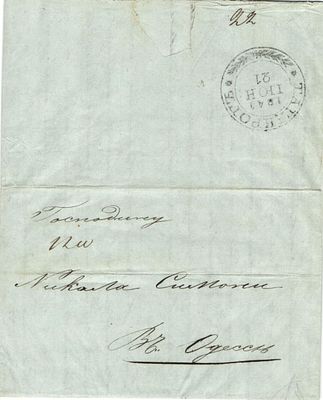 22
ТАГАНРОГЪ
1849
ІЮН
21
Господину
Никола Симони
Въ Одессѣ